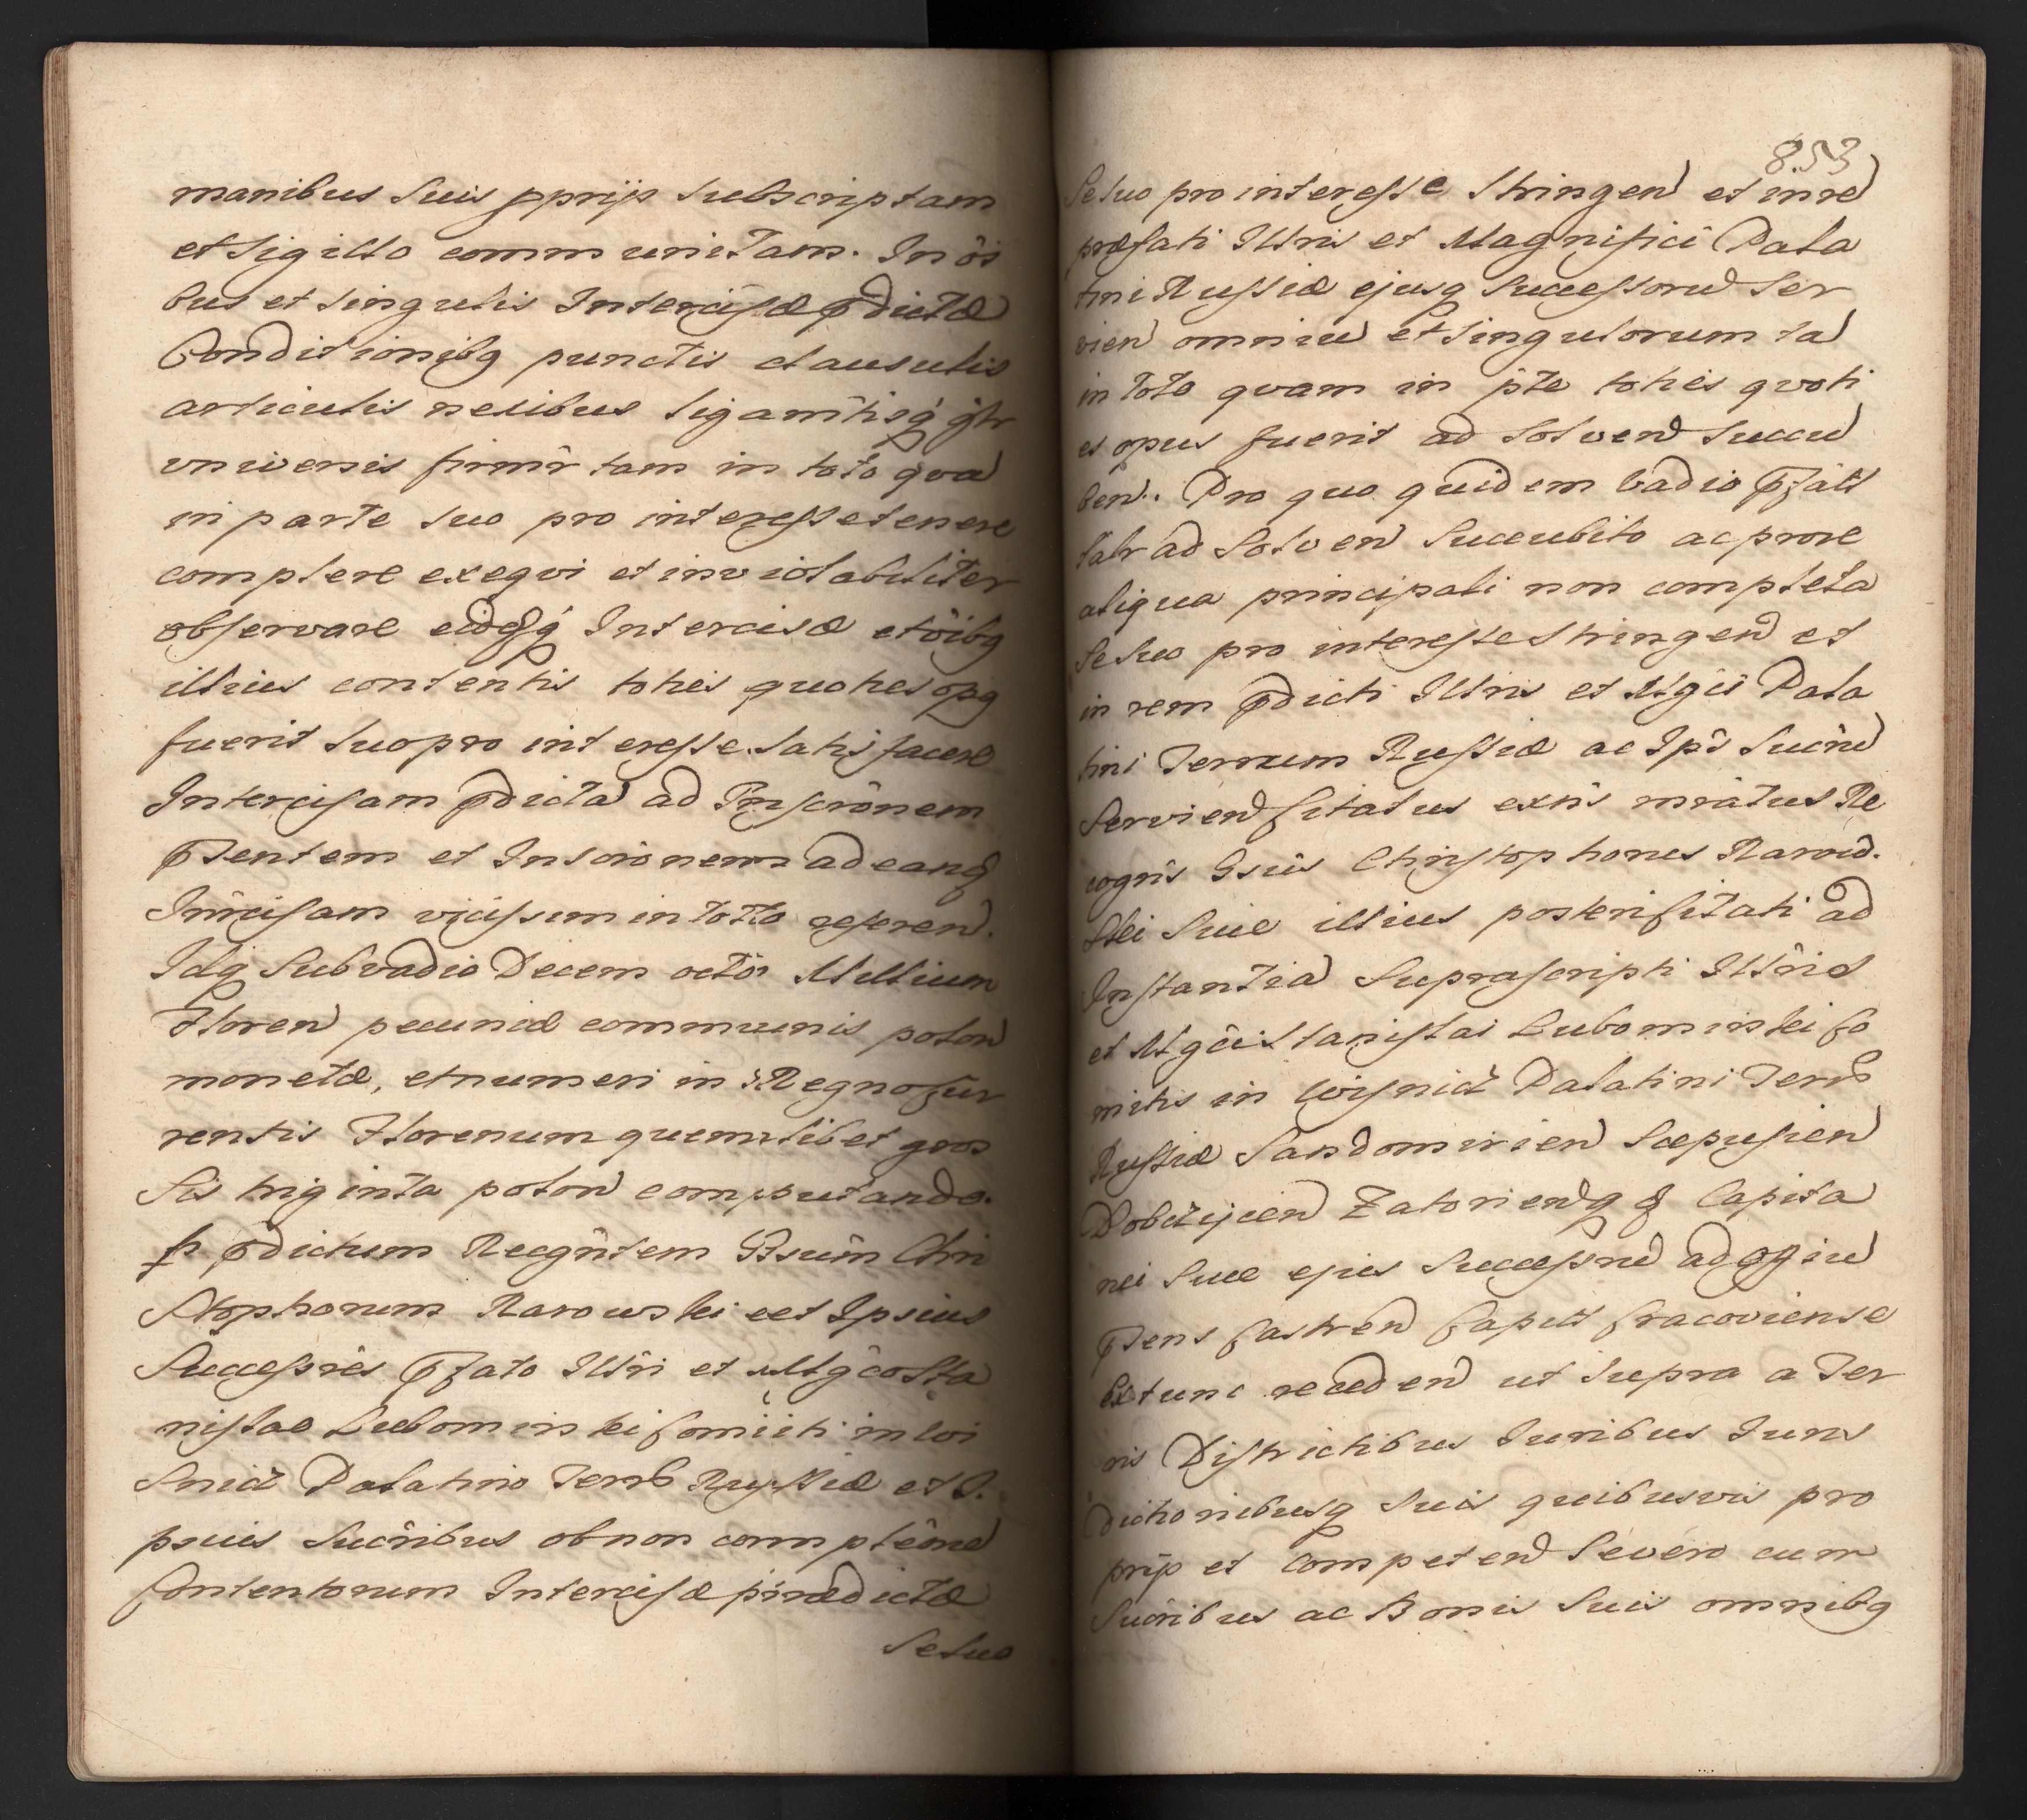 manibus suis pprijs subscriptam
et sigillo communitam. In oi
bus et singulis Intercisæ pdictæ
Conditionibq punctis clausulis
articulis nexibus ligamtisq gtr
vniversis firmr tam in toto qva
in parte suo pro interesse tenere
complere exeqvi et inviolabiliter
observare eidesq Intercisæ et oibq
illius contentis toties quoties opq
fuerit suo pro interesse satisfacere
Intercisam pdicta ad Inscronem
pntem et Inscronem ad eand
Inrcisam vicissim in totto referen.
Idq sub vadio Decem octo Millium
Floren pecuniæ communis polon
monetæ, et numeri in Regno cur
rentis Florenum quemlibet gros
sis triginta polon computando.
p pdictum Recgntem Gsum Chri
stophorum Rarowski et Ipsius
Successres pfato Illri et Mgco Sta
nislao Lubomirski Comiti in Wi
snicz Palatino Terrb Russiæ et I.
psius Sucribus ob non completione
Contentorum Intercisæ prædictæ
Se suo
853
Se suo pro interesse stringen et in re
præfati Illris et Magnifici Pala
tini Russiæ ejusq Successoru ser
vien omniu et singulorum ta
in toto qvam in pte toties qvoti
es opus fuerit ad solvend succu
ben. Pro quo quidem vadio pfatt
talr ad solven succubito ac pro re
aliqua principali non completa
Se suo pro interesse stringend et
in rem pdicti Illris et Mgci Pala
tini Terrarum Russiæ ac Ips Sucru
serviend citatus exns mratus Re
cogns Gsus Christophorus Rarow.
ski sive illius posteri citati ad
Instantia suprascripti Illris
et Mgci Stanislai Lubomirski Co
mitis in Wisnicz Palatini Terrb
Russiæ Sandomirien Scepusien
Dobczycen Zatorienq & Capita
nei sive ejus Successru ad offiu
pns Castren Capitt Cracoviense
Extunc receden ut supra a Ter
ris Districtibus Iuribus Iuris
dictionibusq suis quibusvis pro
prijs et competend severo cum
Sucribus ac Bonis suis omnibq